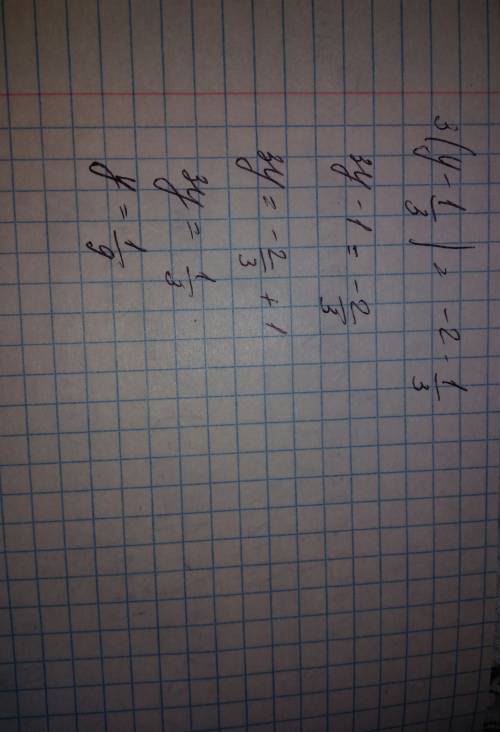 3(y - 1/3) = -2 · 1/3
3y - 1 = -2/3
3y = -2/3 + 1
3y = 1/3
y = 1/9